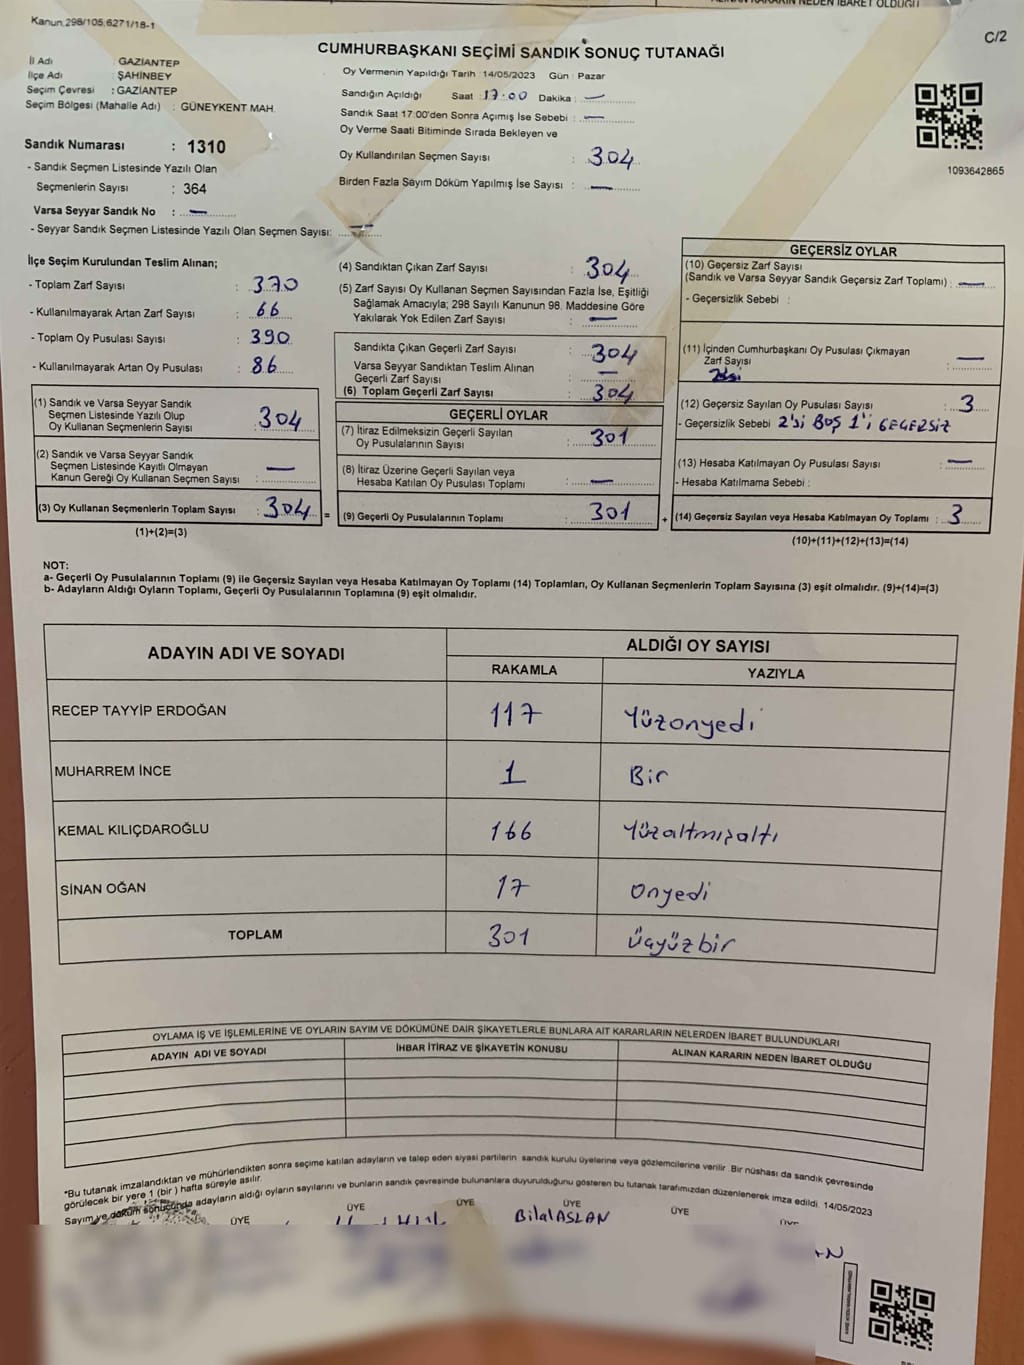 ALINAN KARARIN NEDEN İBARET OLDUĞU
Kanun:298/105;6271/18-1
C/2
CUMHURBAŞKANI SEÇİMİ SANDIK SONUÇ TUTANAĞI
İl Adı : GAZİANTEP
İlçe Adı : ŞAHİNBEY
Seçim Çevresi : GAZİANTEP
Seçim Bölgesi (Mahalle Adı) : GÜNEYKENT MAH.
Sandık Numarası : 1310
- Sandık Seçmen Listesinde Yazılı Olan
Seçmenlerin Sayısı : 364
Varsa Seyyar Sandık No : —
- Seyyar Sandık Seçmen Listesinde Yazılı Olan Seçmen Sayısı: —
Oy Vermenin Yapıldığı Tarih : 14/05/2023 Gün : Pazar
Sandığın Açıldığı Saat : 17:00 Dakika : —
Sandık Saat 17:00'den Sonra Açımış İse Sebebi : —
Oy Verme Saati Bitiminde Sırada Bekleyen ve
Oy Kullandırılan Seçmen Sayısı : 304
Birden Fazla Sayım Döküm Yapılmış İse Sayısı : —
1093642865
İlçe Seçim Kurulundan Teslim Alınan;
- Toplam Zarf Sayısı : 370
- Kullanılmayarak Artan Zarf Sayısı : 66
- Toplam Oy Pusulası Sayısı : 390
- Kullanılmayarak Artan Oy Pusulası : 86
(1) Sandık ve Varsa Seyyar Sandık
Seçmen Listesinde Yazılı Olup
Oy Kullanan Seçmenlerin Sayısı : 304
(2) Sandık ve Varsa Seyyar Sandık
Seçmen Listesinde Kayıtlı Olmayan
Kanun Gereği Oy Kullanan Seçmen Sayısı : —
(3) Oy Kullanan Seçmenlerin Toplam Sayısı : 304 =
(1)+(2)=(3)
(4) Sandıktan Çıkan Zarf Sayısı : 304
(5) Zarf Sayısı Oy Kullanan Seçmen Sayısından Fazla İse, Eşitliği
Sağlamak Amacıyla; 298 Sayılı Kanunun 98. Maddesine Göre
Yakılarak Yok Edilen Zarf Sayısı : —
Sandıkta Çıkan Geçerli Zarf Sayısı : 304
Varsa Seyyar Sandıktan Teslim Alınan
Geçerli Zarf Sayısı : —
(6) Toplam Geçerli Zarf Sayısı : 304
GEÇERLİ OYLAR
(7) İtiraz Edilmeksizin Geçerli Sayılan
Oy Pusulalarının Sayısı : 301
(8) İtiraz Üzerine Geçerli Sayılan veya
Hesaba Katılan Oy Pusulası Toplamı : —
(9) Geçerli Oy Pusulalarının Toplamı : 301 +
GEÇERSİZ OYLAR
(10) Geçersiz Zarf Sayısı
(Sandık ve Varsa Seyyar Sandık Geçersiz Zarf Toplamı) : —
- Geçersizlik Sebebi :
(11) İçinden Cumhurbaşkanı Oy Pusulası Çıkmayan
Zarf Sayısı —
(12) Geçersiz Sayılan Oy Pusulası Sayısı : 3
- Geçersizlik Sebebi 2'si BOŞ 1'i GEÇERSİZ
(13) Hesaba Katılmayan Oy Pusulası Sayısı : —
- Hesaba Katılmama Sebebi :
(14) Geçersiz Sayılan veya Hesaba Katılmayan Oy Toplamı : 3
(10)+(11)+(12)+(13)=(14)
NOT:
a- Geçerli Oy Pusulalarının Toplamı (9) ile Geçersiz Sayılan veya Hesaba Katılmayan Oy Toplamı (14) Toplamları, Oy Kullanan Seçmenlerin Toplam Sayısına (3) eşit olmalıdır. (9)+(14)=(3)
b- Adayların Aldığı Oyların Toplamı, Geçerli Oy Pusulalarının Toplamına (9) eşit olmalıdır.
ADAYIN ADI VE SOYADI
ALDIĞI OY SAYISI
RAKAMLA YAZIYLA
RECEP TAYYİP ERDOĞAN 117 Yüzonyedi
MUHARREM İNCE 1 Bir
KEMAL KILIÇDAROĞLU 166 Yüzaltmışaltı
SİNAN OĞAN 17 Onyedi
TOPLAM 301 üçyüzbir
OYLAMA İŞ VE İŞLEMLERİNE VE OYLARIN SAYIM VE DÖKÜMÜNE DAİR ŞİKAYETLERLE BUNLARA AİT KARARLARIN NELERDEN İBARET BULUNDUKLARI
ADAYIN ADI VE SOYADI İHBAR İTİRAZ VE ŞİKAYETİN KONUSU ALINAN KARARIN NEDEN İBARET OLDUĞU
"Bu tutanak imzalandıktan ve mühürlendikten sonra seçime katılan adayların ve talep eden siyasi partilerin sandık kurulu üyelerine veya gözlemcilerine verilir. Bir nüshası da sandık çevresinde
görülecek bir yere 1 (bir) hafta süreyle asılır.
Sayım ve döküm sonucunda adayların aldığı oyların sayılarını ve bunların sandık çevresinde bulunanlara duyurulduğunu gösteren bu tutanak tarafımızdan düzenlenerek imza edildi. 14/05/2023
ÜYE ÜYE ÜYE ÜYE ÜYE ÜYE
Bilal ASLAN